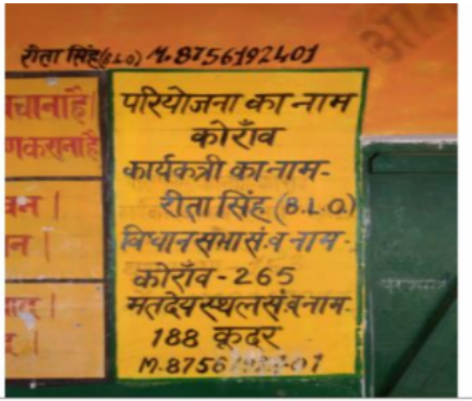 रीता सिंह(B.L.O) M.8756192401
चाना है|
कराना है
परियोजना का नाम
कोराँव
कार्यकत्री का नाम-
रीता सिंह (B.L.O)
विधानसभा सं.व नाम-
कोराँव - 265
मतदेय स्थल सं.व नाम-
188 कूदर